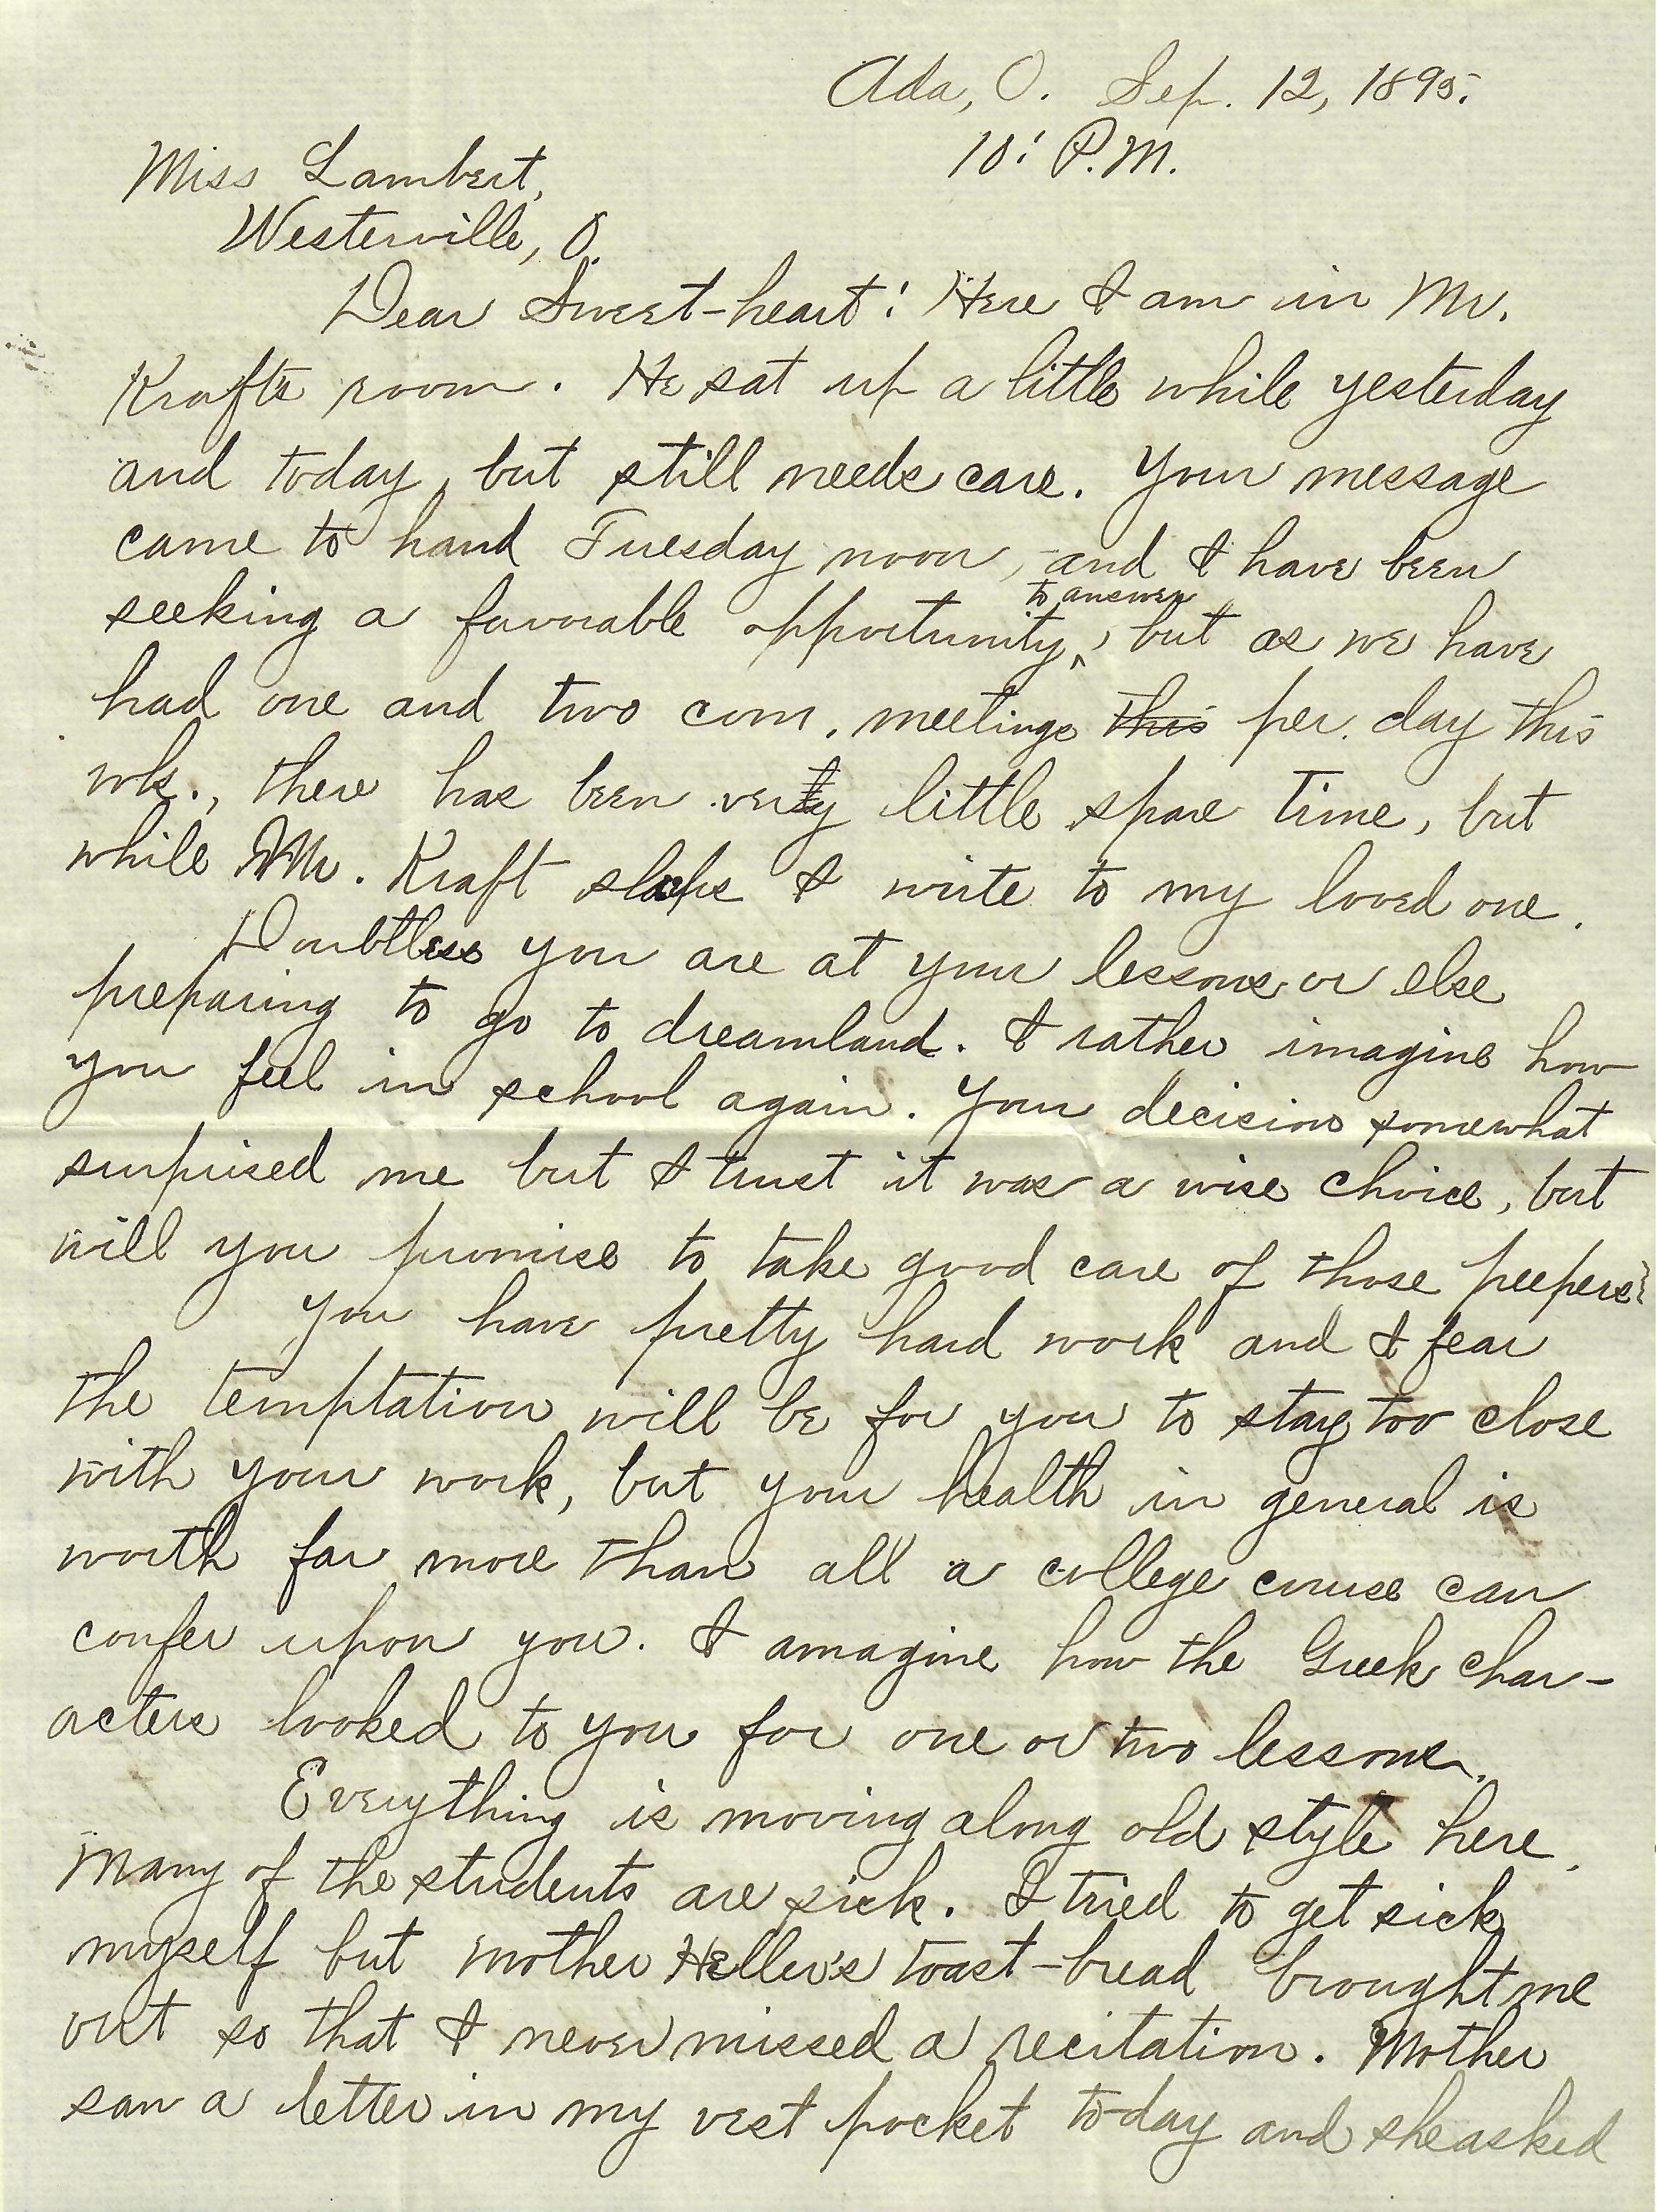 Ada, O. Sep. 12, 1895.
10: P.M.
Miss Lambert,
Westerville, O.
Dear Sweet-heart: Here I am in Mr.
Krafts room. He sat up a little while yesterday
and today, but still needs care. Your message
came to hand Tuesday noon, and I have been
to answer
seeking a favorable opportunity^, but as we have
had one and two com. meetings this per. day this
wk., there has been very little spare time, but
while Mr. Kraft sleeps I write to my loved one.
Doubtless you are at your lessons or else
preparing to go to dreamland. I rather imagine how
you feel in school again. Your decision somewhat
surprised me but I trust it was a wise choice, but
will you promise to take good care of those peepers?
You have pretty hard work and I fear
the temptation will be for you to stay too close
with your work, but your health in general is
worth far more than all a college course can
confer upon you. I amagine how the Greek char-
acters looked to you for one or two lessons.
Everything is moving along old style here.
Many of the students are sick. I tried to get sick
myself but Mother Heller's toast-bread brought me
out so that I never missed a recitation. Mother
saw a letter in my vest pocket to-day and she asked